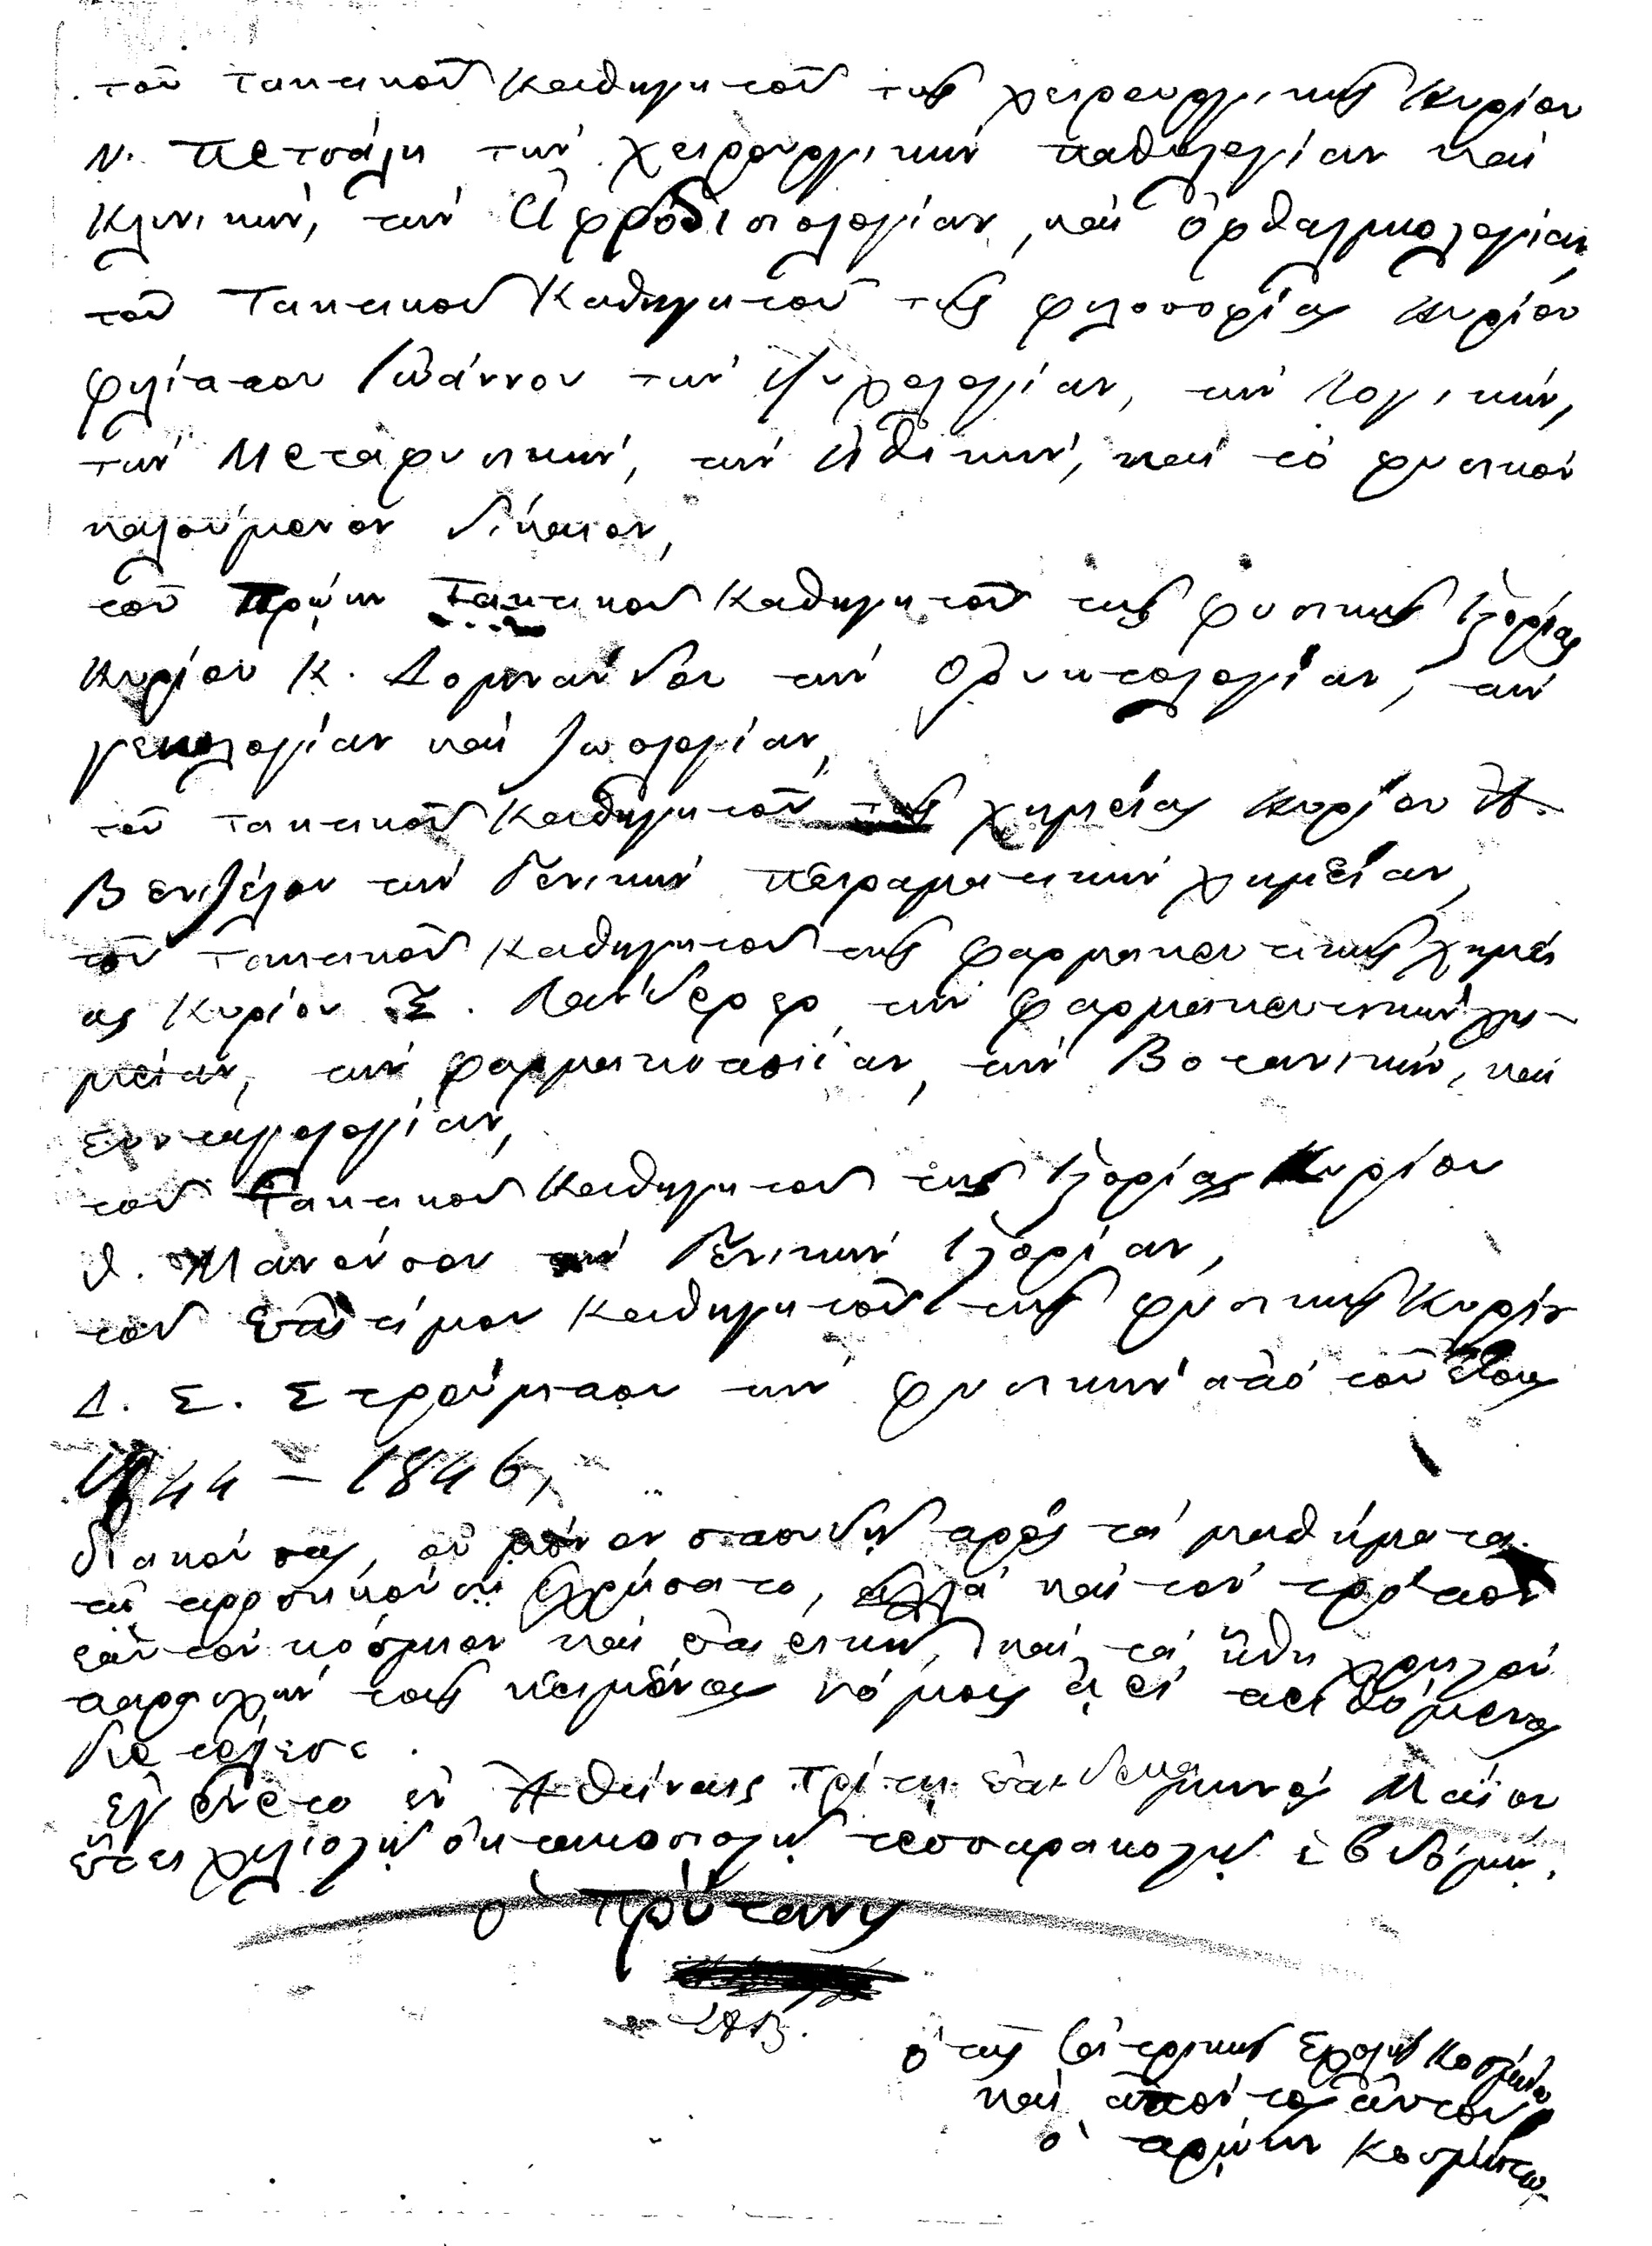 τοῦ τακτικοῦ Καθηγητοῦ τῆς χειρουργικῆς Κυρίου
Ν. Πετσάλη τὴν χειρουργικὴν παθολογίαν καὶ
Κλινικὴν, τὴν Ἀφροδισιολογίαν, καὶ ὀφθαλμολογίαν,
τοῦ Τακτικοῦ Καθηγητοῦ τῆς φιλοσοφίας Κυρίου
φιλίππου Ἰωάννου τὴν ψυχολογίαν, τὴν Λογικὴν,
τὴν Μεταφυσικὴν, τὴν Ἠθικὴν, καὶ τὸ φυσικὸν
καλούμενον δίκαιον,
τοῦ πρώην Τακτικοῦ Καθηγητοῦ τῆς φυσικῆς Ἱστορίας
Κυρίου Κ. Δομνάνδου τὴν Ὀρυκτολογίαν, τὴν
γεωλογίαν καὶ ζωολογίαν,
τοῦ τακτικοῦ Καθηγητοῦ τῆς χημείας Κυρίου Ἀ.
Βενιζέλου τὴν Γενικὴν πειραματικὴν χημείαν,
τοῦ τακτικοῦ Καθηγητοῦ τῆς φαρμακευτικῆς χημεί
ας Κυρίου Ξ. Λάνδερερ τὴν φαρμακευτικὴν χη-
μείαν, τὴν φαρμακοποιΐαν, τὴν Βοτανικὴν, καὶ
Συνταγολογίαν,
τοῦ Τακτικοῦ Καθηγητοῦ τῆς Ἱστορίας Κυρίου
Θ. Μανούσου τὴν Γενικὴν Ἱστορίαν,
τοῦ Ἐπιτίμου Καθηγητοῦ τῆς φυσικῆς Κυρίου
Δ. Σ. Στρούμπου τὴν φυσικὴν ἀπὸ τοῦ ἔτους
1844 – 1846,
διακούσας, οὐ μόνον σπουδῇ πρὸς τὰ μαθήματα
τῇ προσηκούσῃ ἐχρήσατο, ἀλλὰ καὶ τὸν τρόπον
ἑαυτὸν κόσμιον καὶ ἐπιεικῆ, καὶ τὰ ἤθη χρηστὸν
παρασχὼν τοῖς κειμένοις νόμοις ἀεὶ πειθόμενος
διετέλεσε.
Ἐγένετο ἐν Ἀθήναις τρίτῃ ἐπὶ δέκα μηνὸς Μαΐου
ἔτει χιλιοστῷ ὀκτακοσιοστῷ τεσσαρακοστῷ ἑβδόμῳ.
ὁ Πρύτανις
ὁ τῆς Ἰατρικῆς Σχολῆς Κοσμήτωρ
καὶ ἀπόντος αὐτοῦ
ὁ πρώην Κοσμήτωρ